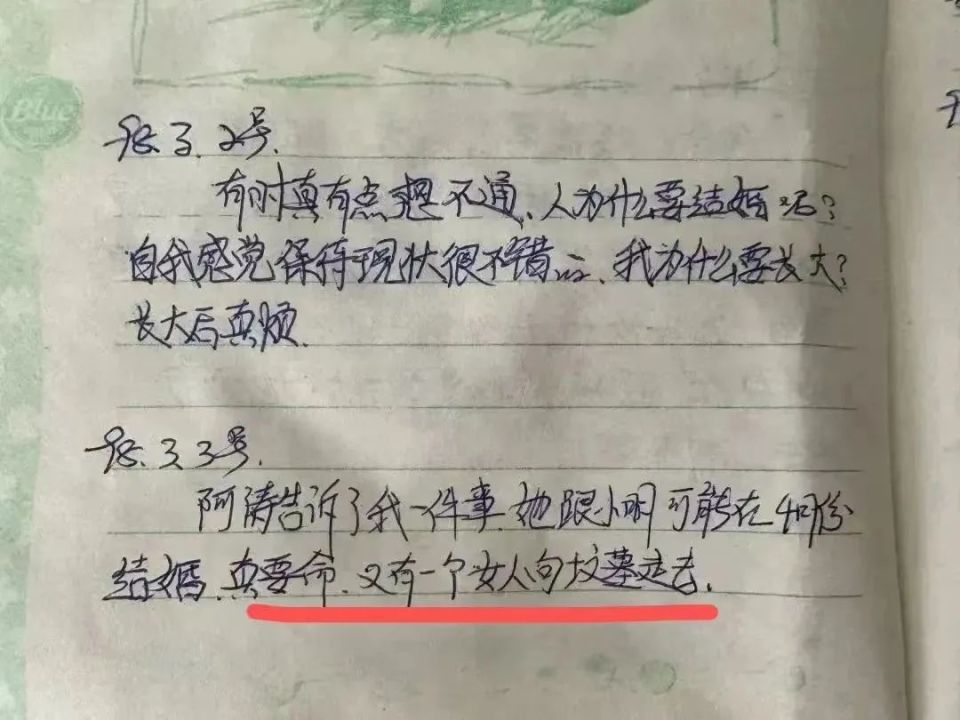 Blue
98.3.2号.
有时真有点想不通、人为什么要结婚呢?
自我感觉保持现状很不错的、我为什么要长大?
长大后真烦.
98.3.3号.
阿涛告诉了我一件事.她跟小明可能在4月份
结婚.真要命.又有一个女人向坟墓走去.